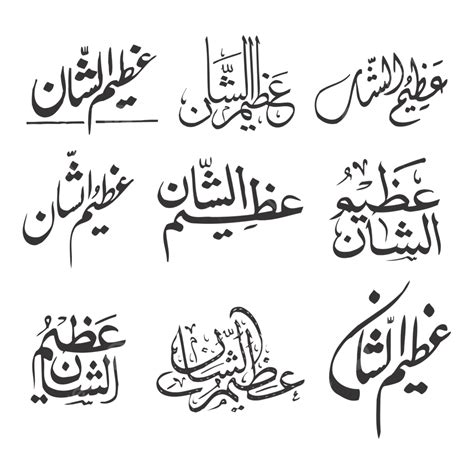 عظیم الشان
عظیم الشان
عظیم الشان
عظیم
الشان
عظیم الشان
عظیم الشان
عظیم الشان
عظیم الشان
عظیم
الشان